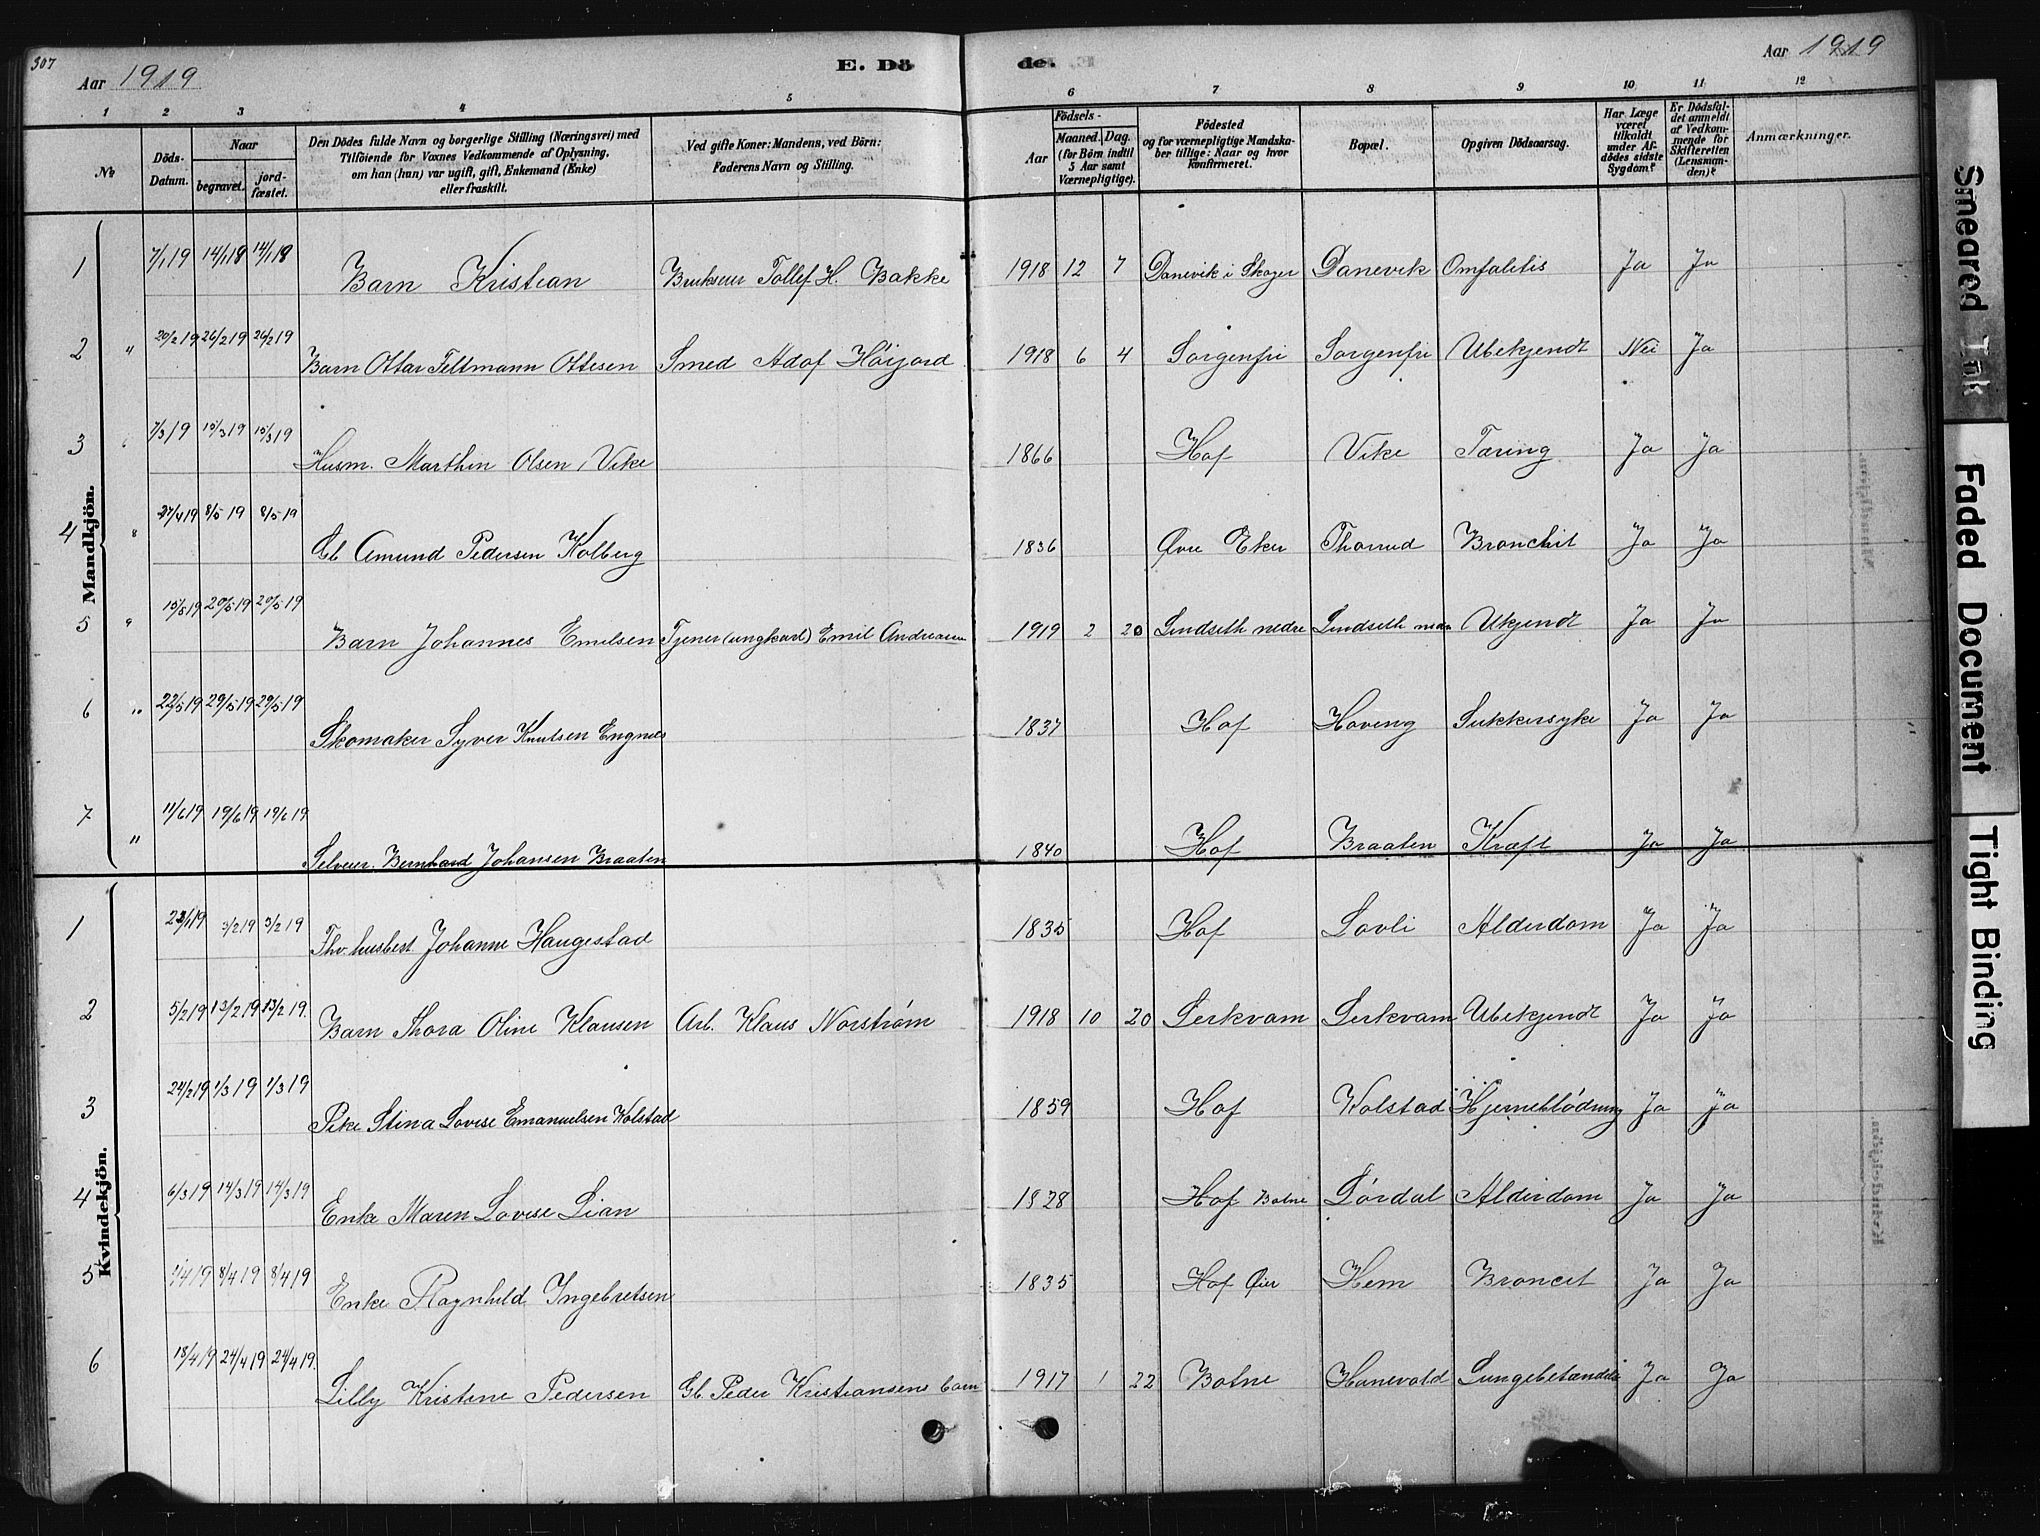 307
Aar 1919
E. Dö
de.
Aar 1919
1 2 3 4 5 6 7 8 9 10 11 12
№
Döds-Datum.
Naar
begravet.
jord-fæstet.
Den Dödes fulde Navn og borgerlige Stilling (Næringsvei) med
Tilföiende for Voxnes Vedkommende af Oplysning,
om han (hun) var ugift, gift, Enkemand (Enke)
eller fraskilt.
Ved gifte Koner: Mandens, ved Börn:
Faderens Navn og Stilling.
Födsels-
Aar
Maaned. Dag.
(for Börn indtil
5 Aar samt
Værnepligtige).
Födested
og for værnepligtige Mandska-
ber tillige: Naar og hvor
konfirmeret.
Bopæl.
Opgiven Dödsaarsag.
Har Læge
været
tilkaldt
under Af-
dödes sidste
Sygdom?
Er Dödsfal-
det anmeldt
af Vedkom-
mende for
Skifteretten
(Lensman-
den)?
Anmærkninger.
Mandkjön.
1 7/1 19 14/1 19 14/1 19 Barn Kristian Brukseier Tollef H. Bakke 1918 12 7 Danevik i Skoger Danevik Omfalitis Ja Ja
2 " 20/2 19 26/2 19 26/2 19 Barn Ottar Teltmann Ottesen Smed Adof Höijord 1918 6 4 Sorgenfri Sorgenfri Ubekjendt Nei Ja
3 " 7/3 19 15/3 19 15/3 19 Husm. Marthin Olsen Vike 1866 Hof Vike Tæring Ja Ja
4 " 27/4 19 8/5 19 8/5 19 Gb Amund Pedersen Kolberg 1836 Øvre Eker Thorrud Bronchit Ja Ja
5 " 15/5 19 20/5 19 20/5 19 Barn Johannes Emilsen Tjener (ungkarl) Emil Andreasen 1919 2 20 Lindseth nedre Lindseth nedre Ukjendt Ja Ja
6 " 22/5 19 29/5 19 29/5 19 Skomaker Syver Knutsen Engnes 1837 Hof Hoveng Sukkersyke Ja Ja
7 " 11/6 19 19/6 19 19/6 19 Selveier Bernhard Johansen Braaten 1840 Hof Braaten Kræft Ja Ja
Kvindekjön.
1 22/1 19 3/2 19 3/2 19 Fhv. husbest Johanne Haugestad 1835 Hof Lovli Alderdom Ja Ja
2 5/2 19 13/2 19 13/2 19. Barn Thora Oline Klausen Arb. Klaus Norström 1918 10 20 Serkvam Serkvam Ubekjendt Ja Ja
3 24/2 19 1/3 19 1/3 19 Pike Stina Lovise Emanuelsen Kolstad 1859 Hof Kolstad Hjerneblödning Ja Ja
4 6/3 19 14/3 19 14/3 19 Enke Maren Lovise Lian 1828 Hof Botne Lördal Alderdom Ja Ja
5 1/4 19 8/4 19 8/4 19 Enke Ragnhild Ingebretsen 1835 Hof Øier Hem Broncit Ja Ja
6 18/4 19 24/4 19 24/4 19. Lilly Kristine Pedersen Gb. Peder Kristiansens barn 1917 1 22 Botne Hanevold Lungebetændelse Ja Ja
Smeared Ink
Faded Document
Tight Binding